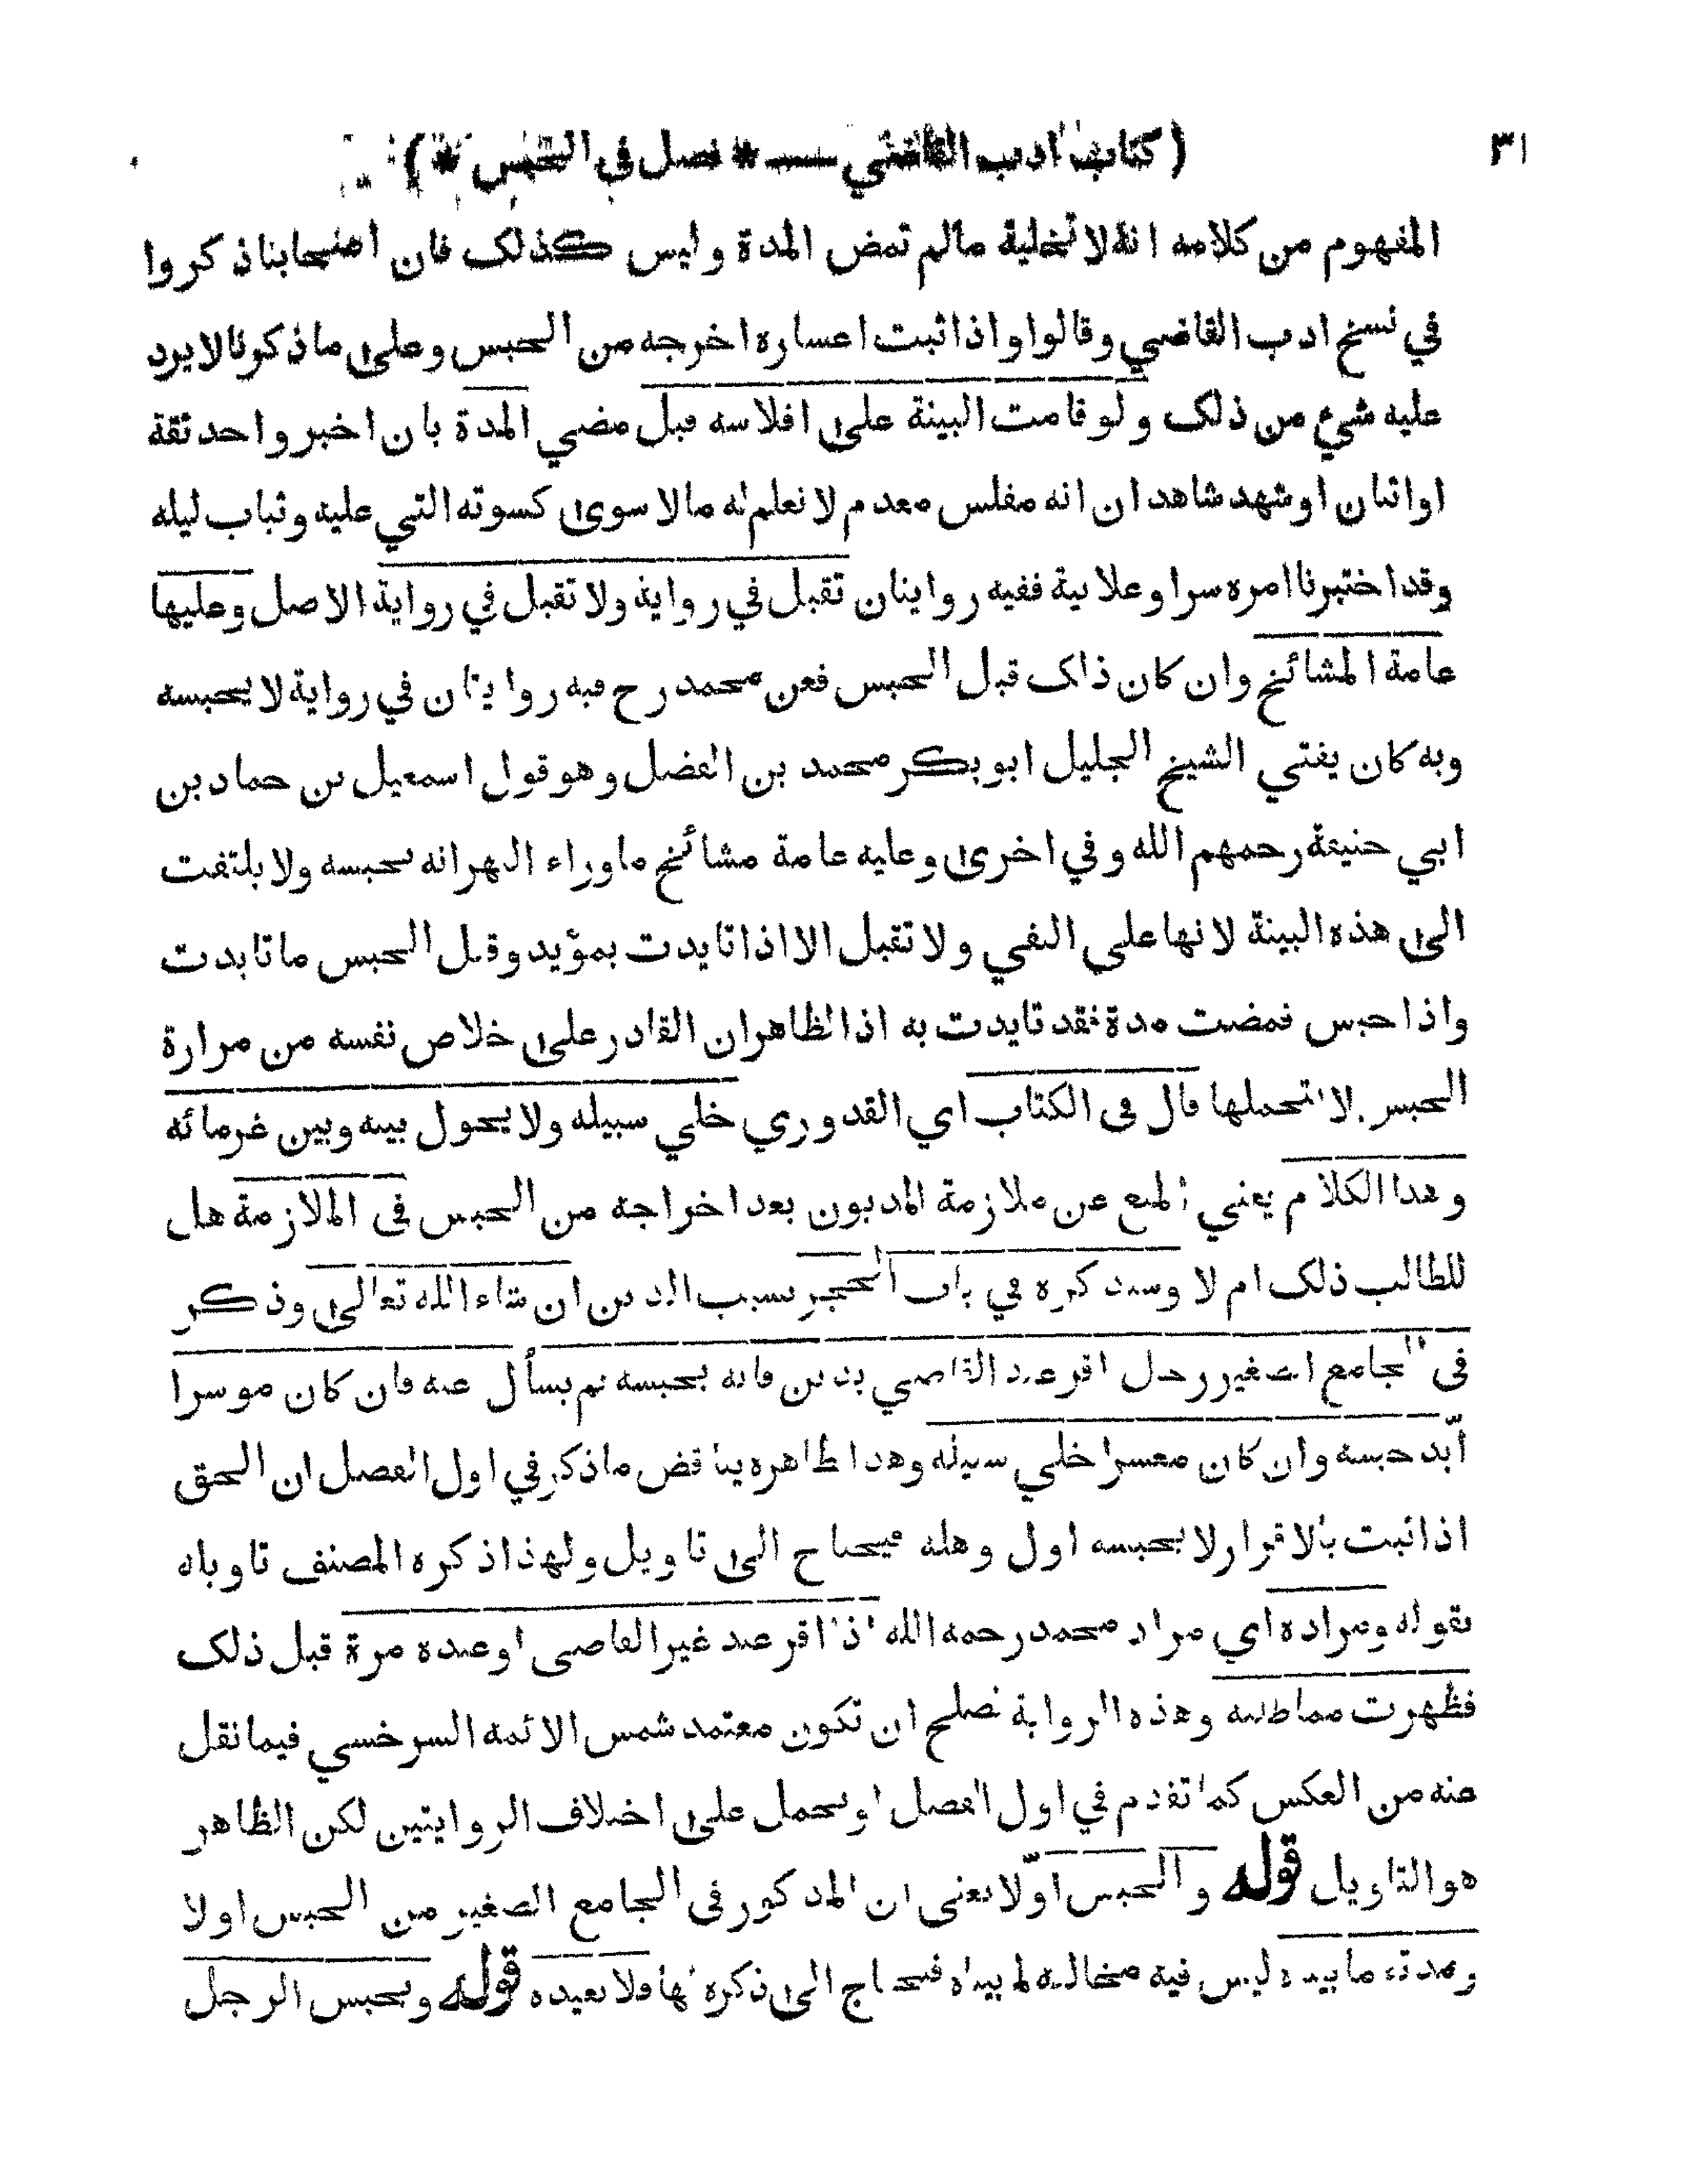 (كتاب ادب القاضي — * فصل في الحبس *) ٣١
المفهوم من كلامه انه لا تخلية مالم تمض المدة وليس كذلك فان اصحابنا ذكروا
في نسخ ادب القاضي وقالوا واذا ثبت اعساره اخرجه من الحبس وعلى ما ذكرنا لا يرد
عليه شيء من ذلك ولو قامت البينة على افلاسه قبل مضي المدة بان اخبر واحد ثقة
او اثنان او شهد شاهدان انه مفلس معدم لا نعلم له مالا سوى كسوته التي عليه وثياب ليله
وقد اختبرنا امره سرا وعلانية ففيه روايتان تقبل في رواية ولا تقبل في رواية الاصل وعليها
عامة المشائخ وان كان ذلك قبل الحبس فعن محمد رح فيه روايتان في رواية لا يحبسه
وبه كان يفتي الشيخ الجليل ابو بكر محمد بن الفضل وهو قول اسمعيل بن حماد بن
ابي حنيفة رحمهم الله وفي اخرى وعليه عامة مشائخ ماوراء النهر انه يحبسه ولا يلتفت
الى هذه البينة لانها على النفي ولا تقبل الا اذا تايدت بمؤيد وقبل الحبس ما تايدت
واذا حبس فمضت مدة فقد تايدت به اذ الظاهر ان القادر على خلاص نفسه من مرارة
الحبس لا يتحملها قال في الكتاب اي القدوري خلي سبيله ولا يحول بينه وبين غرمائه
وهذا الكلام يعني المنع عن ملازمة المديون بعد اخراجه من الحبس في الملازمة هل
للطالب ذلك ام لا وسنذكره في باب الحجر بسبب الدين ان شاء الله تعالى وذكر
في الجامع الصغير رجل اقر عند القاضي بدين فانه يحبسه ثم يسأل عنه فان كان موسرا
أبّد حبسه وان كان معسرا خلي سبيله وهذا ظاهره يناقض ما ذكر في اول الفصل ان الحق
اذا ثبت بالاقرار لا يحبسه اول وهله فيحتاج الى تاويل ولهذا ذكره المصنف تاويله
بقوله ومراده اي مراد محمد رحمه الله اذا اقر عند غير القاضي او عنده مرة قبل ذلك
فظهرت مماطلته وهذه الرواية تصلح ان تكون معتمد شمس الائمه السرخسي فيما نقل
عنه من العكس كما تقدم في اول الفصل او يحمل على اختلاف الروايتين لكن الظاهر
هو التاويل قوله والحبس اوّلا يعني ان المذكور في الجامع الصغير من الحبس اولا
ومدته ما بيناه ليس فيه مخالفه لما بيناه فيحتاج الى ذكره فلا نعيده قوله ويحبس الرجل